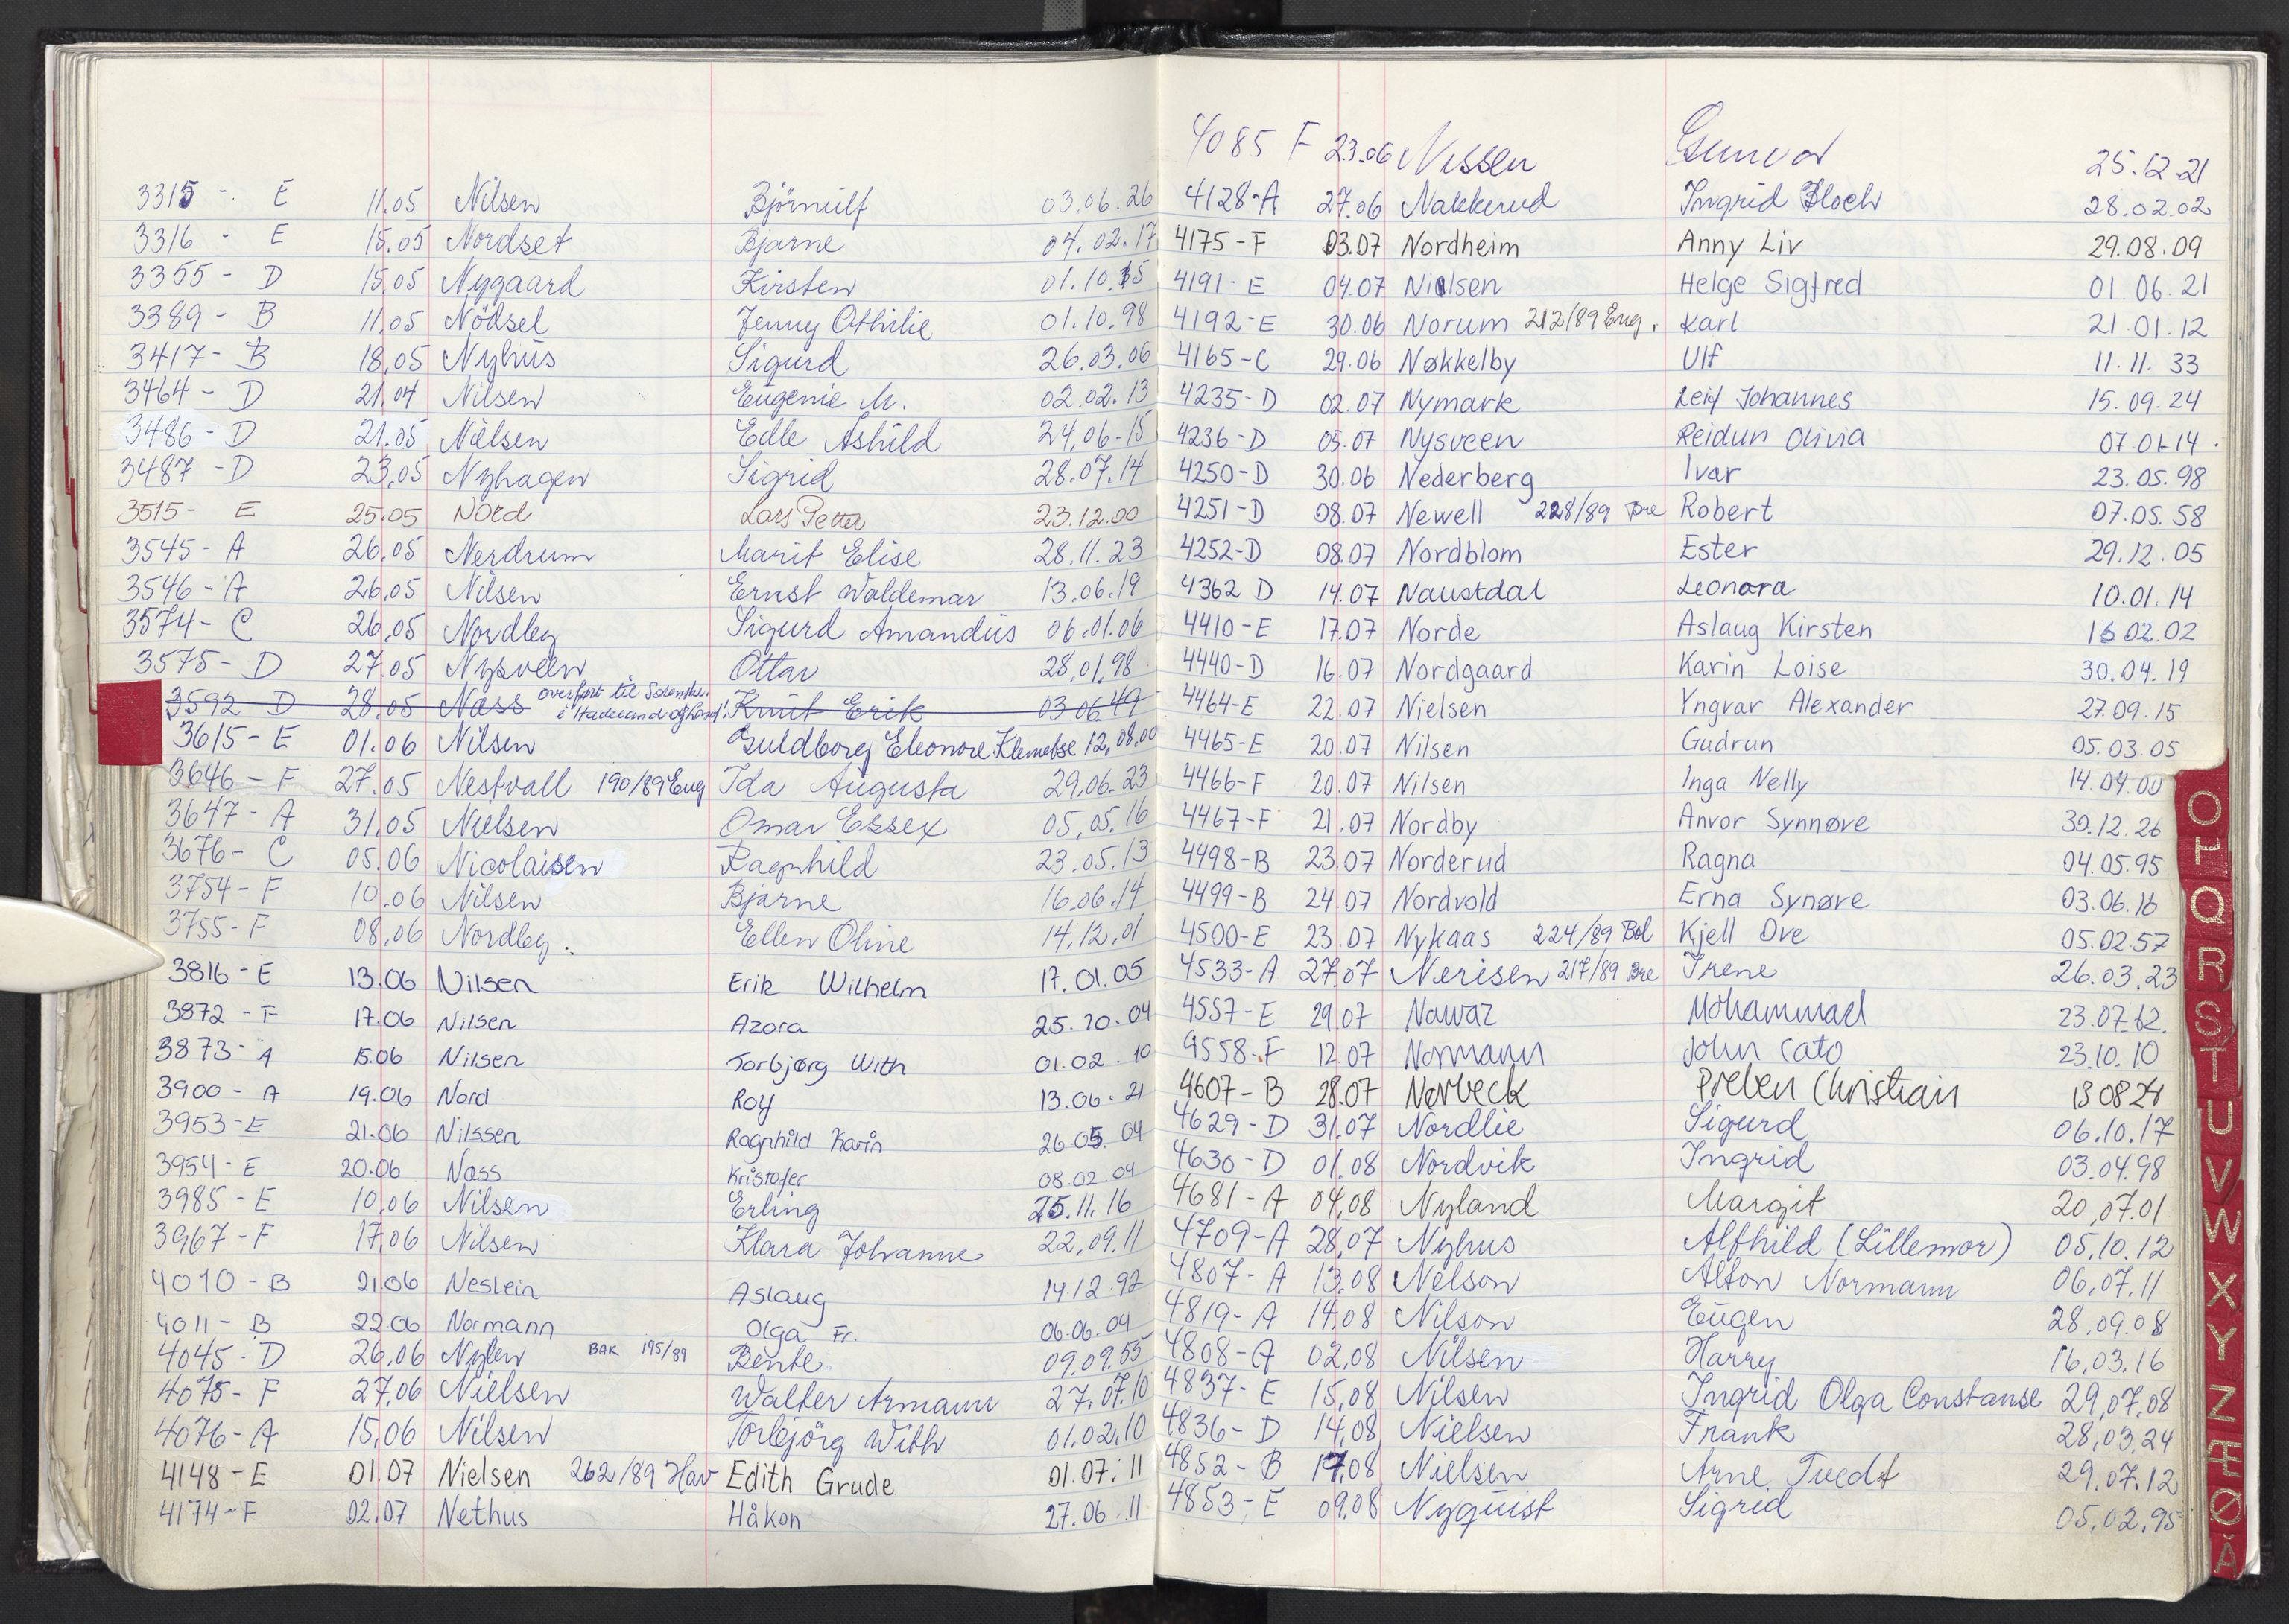 3315 - E 11.05 Nilsen Björnulf 03.06.26
3316 - E 15.05 Nordset Bjarne 04.02.17
3355 - D 15.05 Nygaard Kirsten 01.10.15
3389 - B 11.05 Nödsel Jenny Othilie 01.10.98
3417 - B 18.05 Nyhus Sigurd 26.03.06
3464 - D 21.04 Nilsen Eugenie M. 02.02.13
3486 - D 21.05 Nilsen Edle Ashild 24.06-15
3487 - D 23.05 Nyhagen Sigrid 28.07.14
3515 - E 25.05 Nord Lars Petter 23.12.00
3545 - A 26.05 Nerdrum Marit Elise 28.11.23
3546 - A 26.05 Nilsen Ernst Waldemar 13.06.19
3574 - C 26.05 Nordby Sigurd Amandus 06.01.06
3575 - D 27.05 Nysveen Ottar 28.01.98
3592 D 28.05 Næss overført til Knut Erik 03 06.49
3615 - E 01.06 Nilsen Guldborg Eleonore 12.08.00
3646 - F 27.05 Nestvall 190/89 Eng Ida Augusta 29.06.23
3647 - A 31.05 Nielsen Omar Essex 05.05.16
3676 - C 05.06 Nicolaisen Ragnhild 23.05.13
3754 - F 10.06 Nilsen Bjarne 16.06.14
3755 - F 08.06 Nordby. Ellen Oline 14.12.01
3816 - E 13.06 Nilsen Erik Wilhelm 17.01.05
3872 - F 17.06 Nilsen Azora 25.10.04
3873 - A 15.06 Nilsen Torbjørg With 01.02.10
3900 - A 19.06 Nord Roy 13.06.21
3953 - E 21.06 Nilssen Ragnhild Karin 26.05.04
3954 - E 20.06 Næss Kristofer 08.02.04
3985 - E 10.06 Nilsen Erling 25.11.16
3967 - F 17.06 Nilsen Klara Johanne 22.09.11
4010 - B 21.06 Neslein Aslaug 14.12.97
4011 - B 22.06 Normann Olga Fr. 06.06.04
4045 - D 26.06 Nylen BAK 195/89 Bente 09.09.55
4075 - F 27.06 Nielsen Walter Armann 27.07.10
4076 - A 15.06 Nilsen Torbjörg With 01.02.10
4148 - E 01.07 Nielsen 262/89 Hav Edith Grude 01.07.11
4174 - F 02.07 Nethus Håkon 27.06.11
4085 F 23.06 Nissen Gunvor 25.12.21
4128-A 27.06 Nakkerud Ingrid Bloch 28.02.02
4175 - F 03.07 Nordheim Anny Liv 29.08.09
4191 - E 04.07 Nielsen Helge Sigfred 01.06.21
4192 - E 30.06 Norum 212/89 Eng. Karl 21.01.12
4165 - C 29.06 Nøkkelby Ulf 11.11.33
4235 - D 02.07 Nymark Leif Johannes 15.09.24
4236 - D 05.07 Nysveen Reidun Olivia 07.01.14.
4250 - D 30.06 Nederberg Ivar 23.05.98
4251 - D 08.07 Newell 228/89 Bre Robert 07.05.58
4252-D 08.07 Nordblom Ester 29.12.05
4362 D 14.07 Naustdal Leonora 10.01.14
4410 - E 17.07 Norde Aslaug Kirsten 16 02.02
4440 - D 16.07 Nordgaard Karin Loise 30.04.19
4464 - E 22.07 Nielsen Yngvar Alexander 27.09.15
4465 - E 20.07 Nilsen Gudrun 05.03.05
4466 - F 20.07 Nilsen Inga Nelly 14.04.00
4467 - F 21.07 Nordby Anvor Synnøve 30.12.26
4498 - B 23.07 Norderud Ragna 04.05.95
4499 - B 24.07 Nordvold Erna Synøve 03.06.16
4500 - E 23.07 Nykaas 224/89 Bol Kjell Ove 05.02.57
4533 - A 27.07 Nerisen 217/89 Bre Irene 26.03.23
4557 - E 29.07 Nawaz Mohammad 23.07.62.
4558 - F 12.07 Normann John Cato 23.10.10
4607 - B 28.07 Nørbeck Preben Christian 13 08 24
4629 - D 31.07 Nordlie Sigurd 06.10.17
4630 - D 01.08 Nordvik Ingrid 03.04.98
4681 - A 04.08 Nyland Margit 20.07.01
4709 - A 28.07 Nyhus Alfhild (Lillemor) 05.10.12
4807 - A 13.08 Nelson Alton Normann 06.07.11
4819 - A 14.08 Nilson Eugen 28.09.08
4808 - A 02.08 Nilsen Harry 16.03.16
4837 - E 15.08 Nilsen Ingrid Olga Constanse 29.07.08
4836 - D 14.08 Nielsen Frank 28.03.24
4852 - B 17.08 Nielsen Arne Tvedt 29.07.12
4853 - E 09.08 Nyquist Sigrid 05.02.95
O
P
Q
R
S
T
U
V
W
X
Y
Z
Æ
Ø
Å